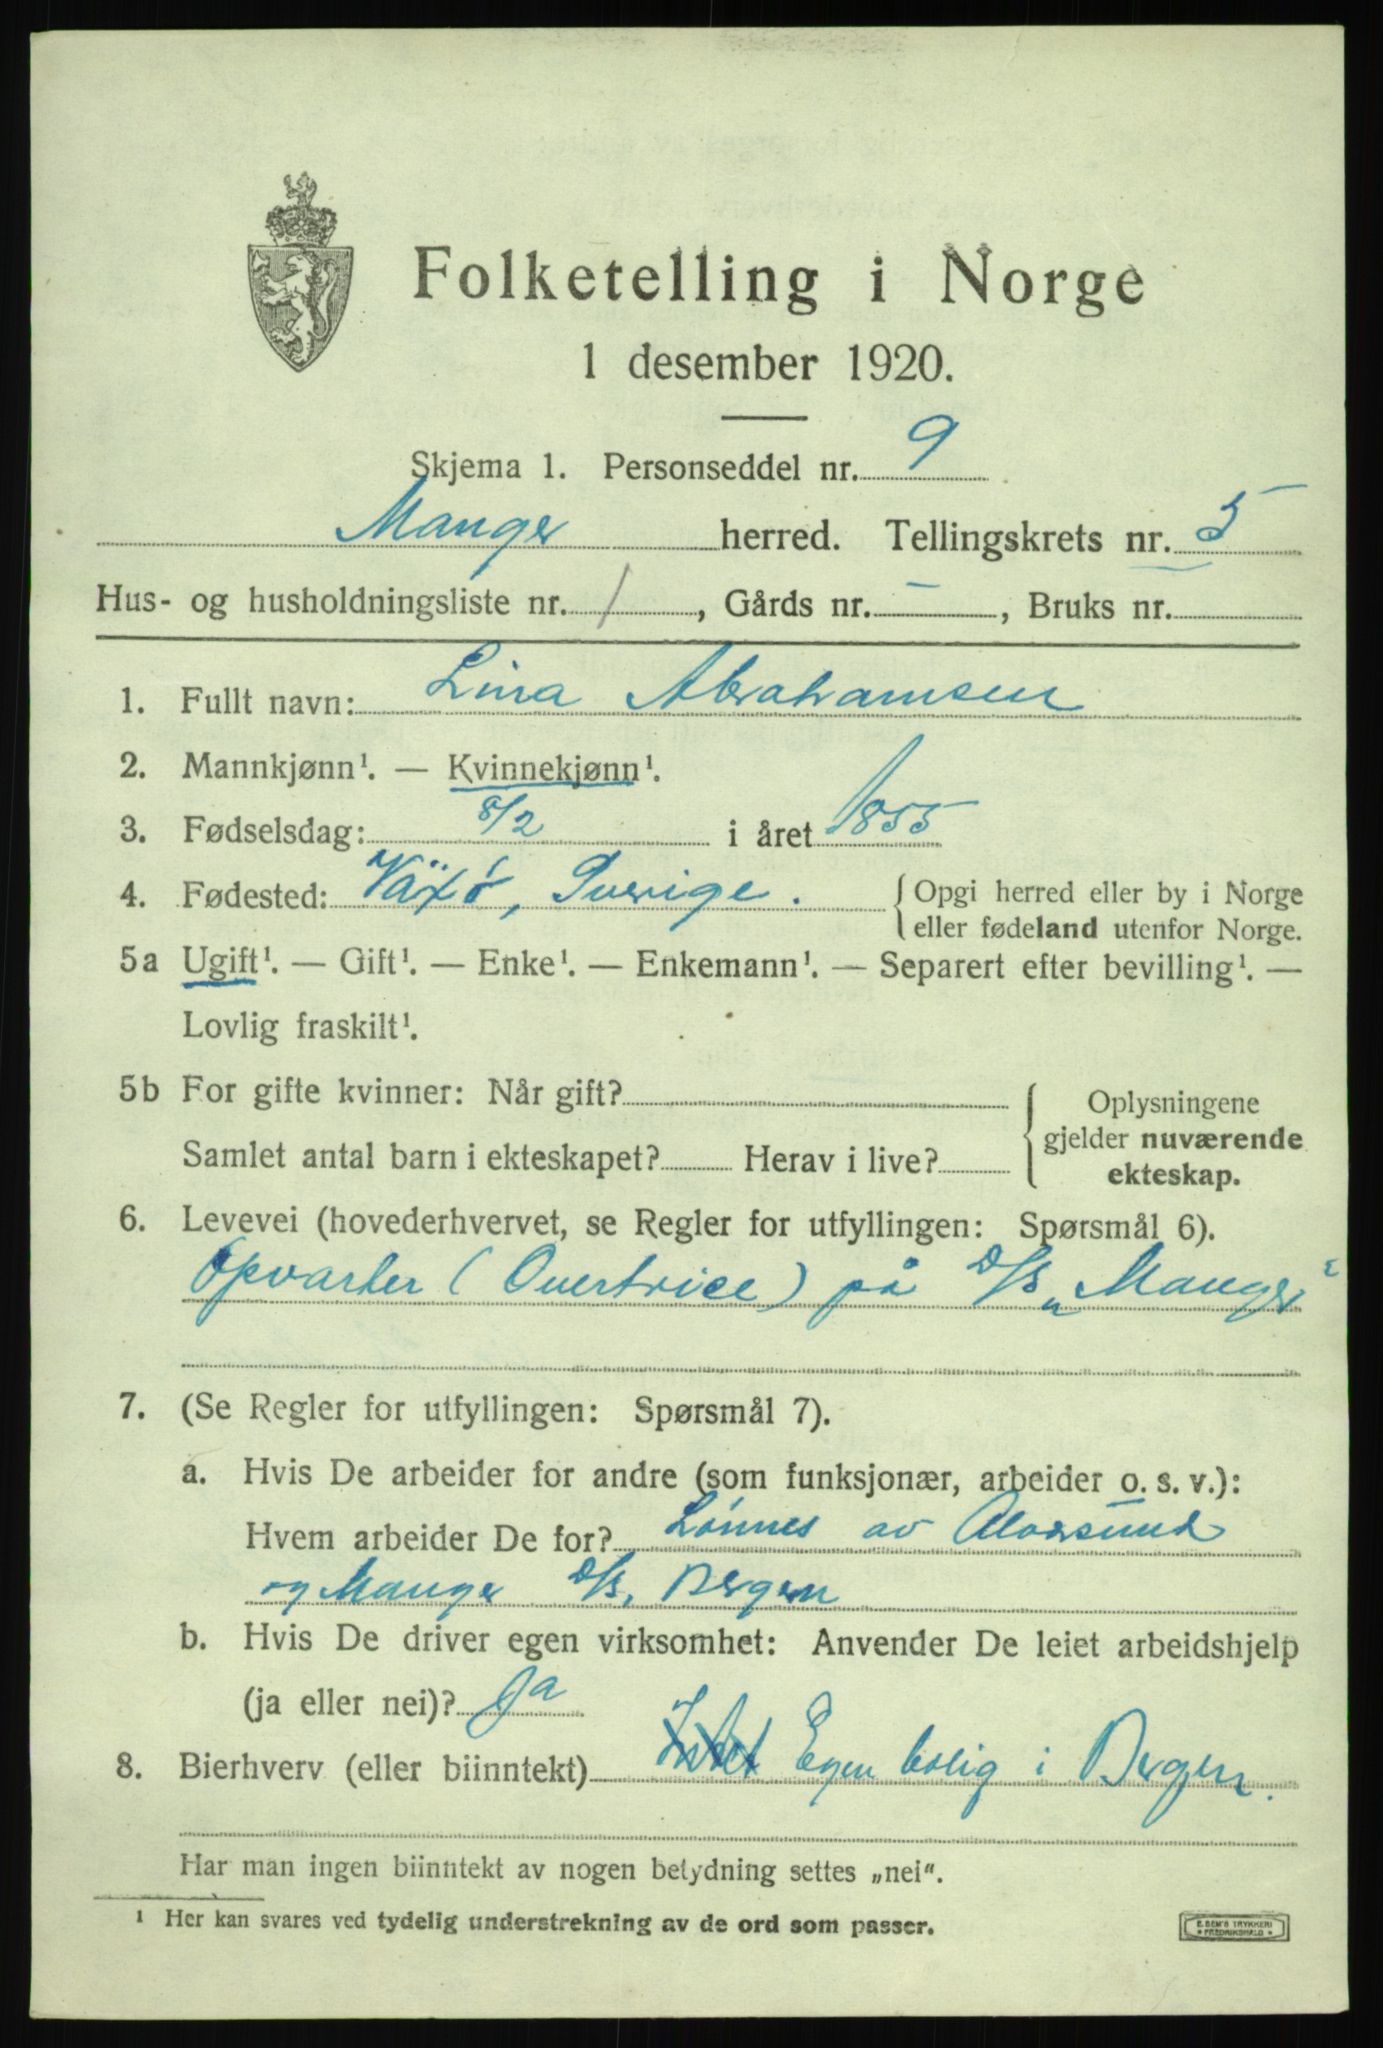 Folketelling i Norge
1 desember 1920.
Skjema 1. Personseddel nr. 9
Manger herred. Tellingskrets nr. 5
Hus- og husholdningsliste nr. 1, Gårds nr. –, Bruks nr.
1. Fullt navn: Lina Abrahamsen
2. Mannkjønn¹. — Kvinnekjønn¹.
3. Fødselsdag: 8/2 i året 1855
4. Fødested: Växö, Sverige. { Opgi herred eller by i Norge
eller fødeland utenfor Norge.
5a Ugift¹. — Gift¹. — Enke¹. — Enkemann¹. — Separert efter bevilling¹. —
Lovlig fraskilt¹.
5b For gifte kvinner: Når gift? { Oplysningene
gjelder nuværende
Samlet antal barn i ekteskapet? Herav i live? ekteskap.
6. Levevei (hovederhvervet, se Regler for utfyllingen: Spørsmål 6).
Opvarter (Overtrice) på D/S „Manger“
7. (Se Regler for utfyllingen: Spørsmål 7).
a. Hvis De arbeider for andre (som funksjonær, arbeider o. s. v.):
Hvem arbeider De for? Lønnes av Alversund
og Manger D/S, Bergen
b. Hvis De driver egen virksomhet: Anvender De leiet arbeidshjelp
(ja eller nei)? Ja
8. Bierhverv (eller biinntekt) Intet Egen bolig i Bergen.
Har man ingen biinntekt av nogen betydning settes „nei“.
¹ Her kan svares ved tydelig understrekning av de ord som passer.
E. SEM'S TRYKKERI
* FREDRIKSHALD *